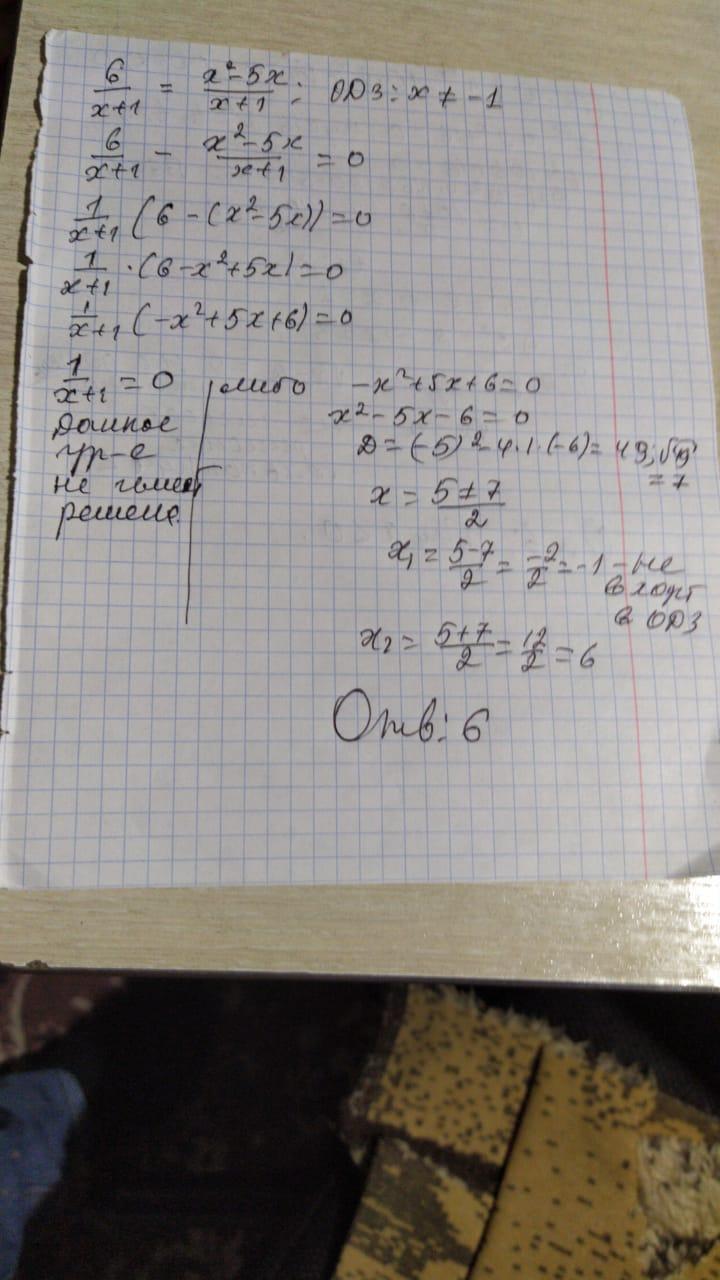 6/(x+1) = (x²-5x)/(x+1); ОДЗ: x ≠ -1
6/(x+1) - (x²-5x)/(x+1) = 0
1/(x+1) (6 - (x²-5x)) = 0
1/(x+1) · (6-x²+5x) = 0
1/(x+1) (-x²+5x+6) = 0
1/(x+1) = 0
Данное
ур-е
не имеет
решений.
либо -x²+5x+6=0
x²-5x-6=0
D=(-5)²-4·1·(-6)=49; √49
=7
x = (5±7)/2
x₁ = (5-7)/2 = -2/2 = -1 - не
входит
в ОДЗ
x₂ = (5+7)/2 = 12/2 = 6
Отв: 6